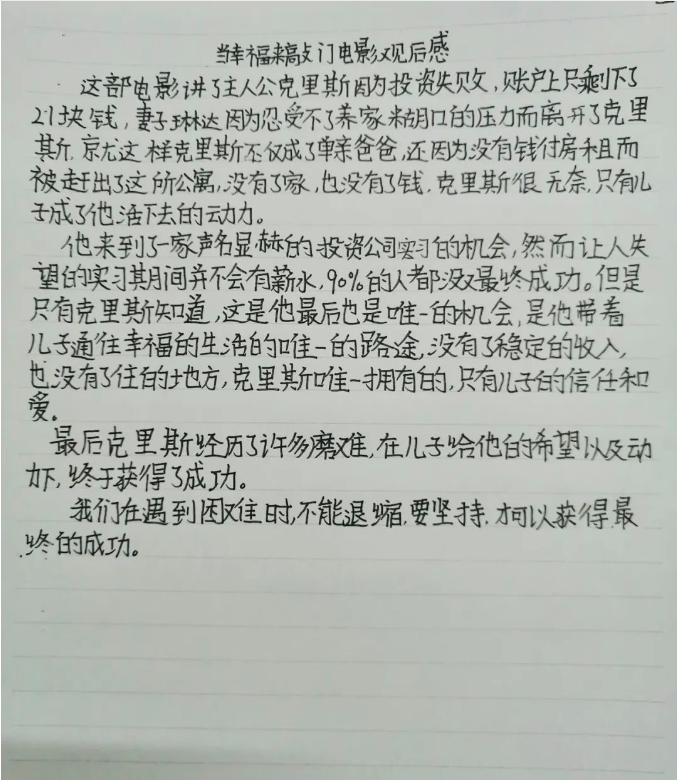 当幸福来敲门电影观后感
这部电影讲了主人公克里斯因为投资失败，账户上只剩下了
21块钱，妻子琳达因为忍受不了养家糊口的压力而离开了克里
斯，就这样克里斯不仅成了单亲爸爸，还因为没有钱付房租而
被赶出了这所公寓，没有了家，也没有了钱，克里斯很无奈，只有儿
子成了他活下去的动力。
他来到了一家声名显赫的投资公司实习的机会，然而让人失
望的实习期间并不会有薪水，90%的人都没最终成功。但是
只有克里斯知道，这是他最后也是唯一的机会，是他带着
儿子通往幸福的生活的唯一的路途，没有了稳定的收入，
也没有了住的地方，克里斯唯一拥有的，只有儿子的信任和
爱。
最后克里斯经历了许多磨难，在儿子给他的希望以及动
力下，终于获得了成功。
我们在遇到困难时，不能退缩，要坚持，才可以获得最
终的成功。